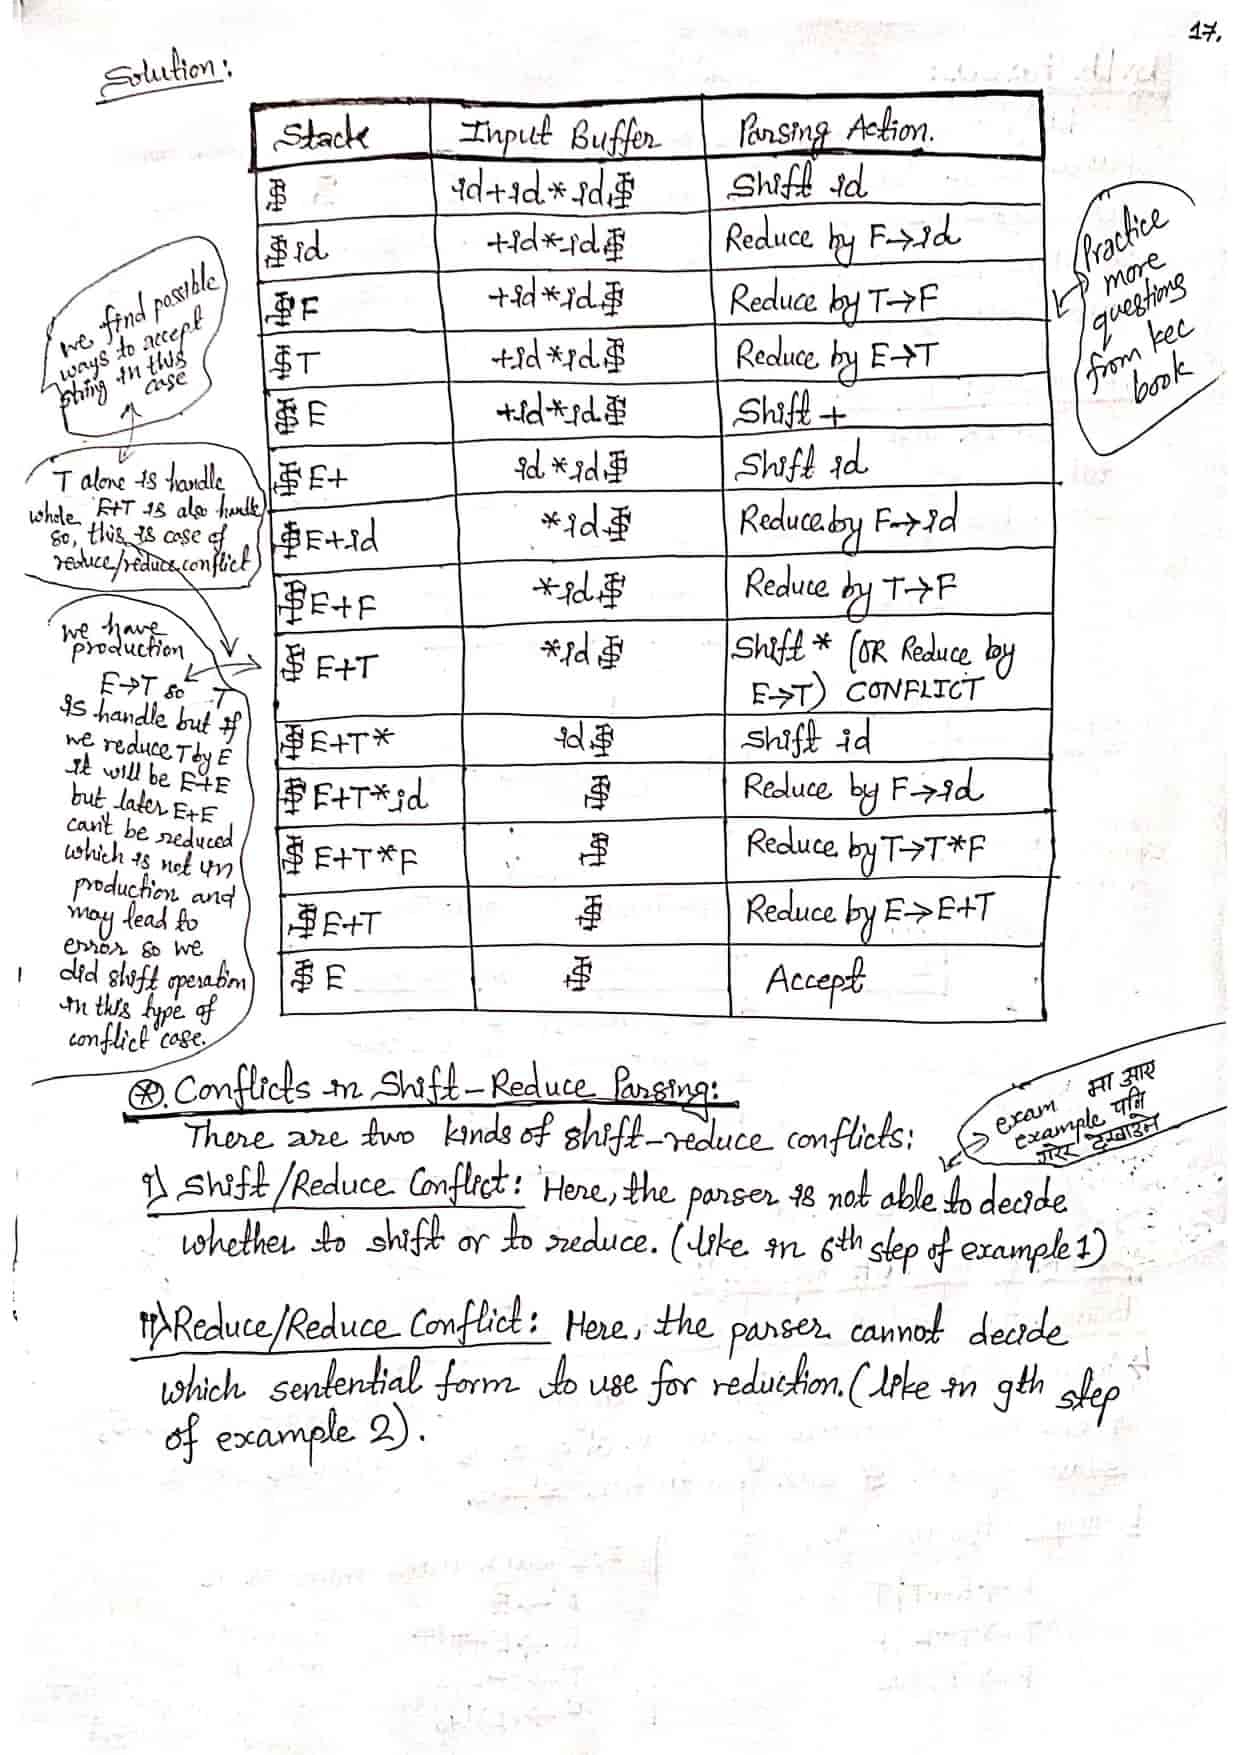 17.
Solution:
Stack | Input Buffer | Parsing Action.
$ | id+id*id$ | Shift id
$id | +id*id$ | Reduce by F→id
$F | +id*id$ | Reduce by T→F
$T | +id*id$ | Reduce by E→T
$E | +id*id$ | Shift +
$E+ | id*id$ | Shift id
$E+id | *id$ | Reduce by F→id
$E+F | *id$ | Reduce by T→F
$E+T | *id$ | Shift * (OR Reduce by
E→T) CONFLICT
$E+T* | id$ | Shift id
$E+T*id | $ | Reduce by F→id
$E+T*F | $ | Reduce by T→T*F
$E+T | $ | Reduce by E→E+T
$E | $ | Accept
we find possible
ways to accept
string in this
case
T alone is handle
whole E+T is also handle
so, this is case of
reduce/reduce conflict
we have
production
E→T so T
is handle but if
we reduce T by E
it will be E+E
but later E+E
can't be reduced
which is not in
production and
may lead to
error so we
did shift operation
in this type of
conflict case.
Practice
more
questions
from kec
book
⊛. Conflicts in Shift-Reduce Parsing:
There are two kinds of shift-reduce conflicts:
exam मा आए
example पनि
गरेर देखाउने
i) Shift/Reduce Conflict: Here, the parser is not able to decide
whether to shift or to reduce. (like in 6th step of example 1)
ii) Reduce/Reduce Conflict: Here, the parser cannot decide
which sentential form to use for reduction. (like in 9th step
of example 2).